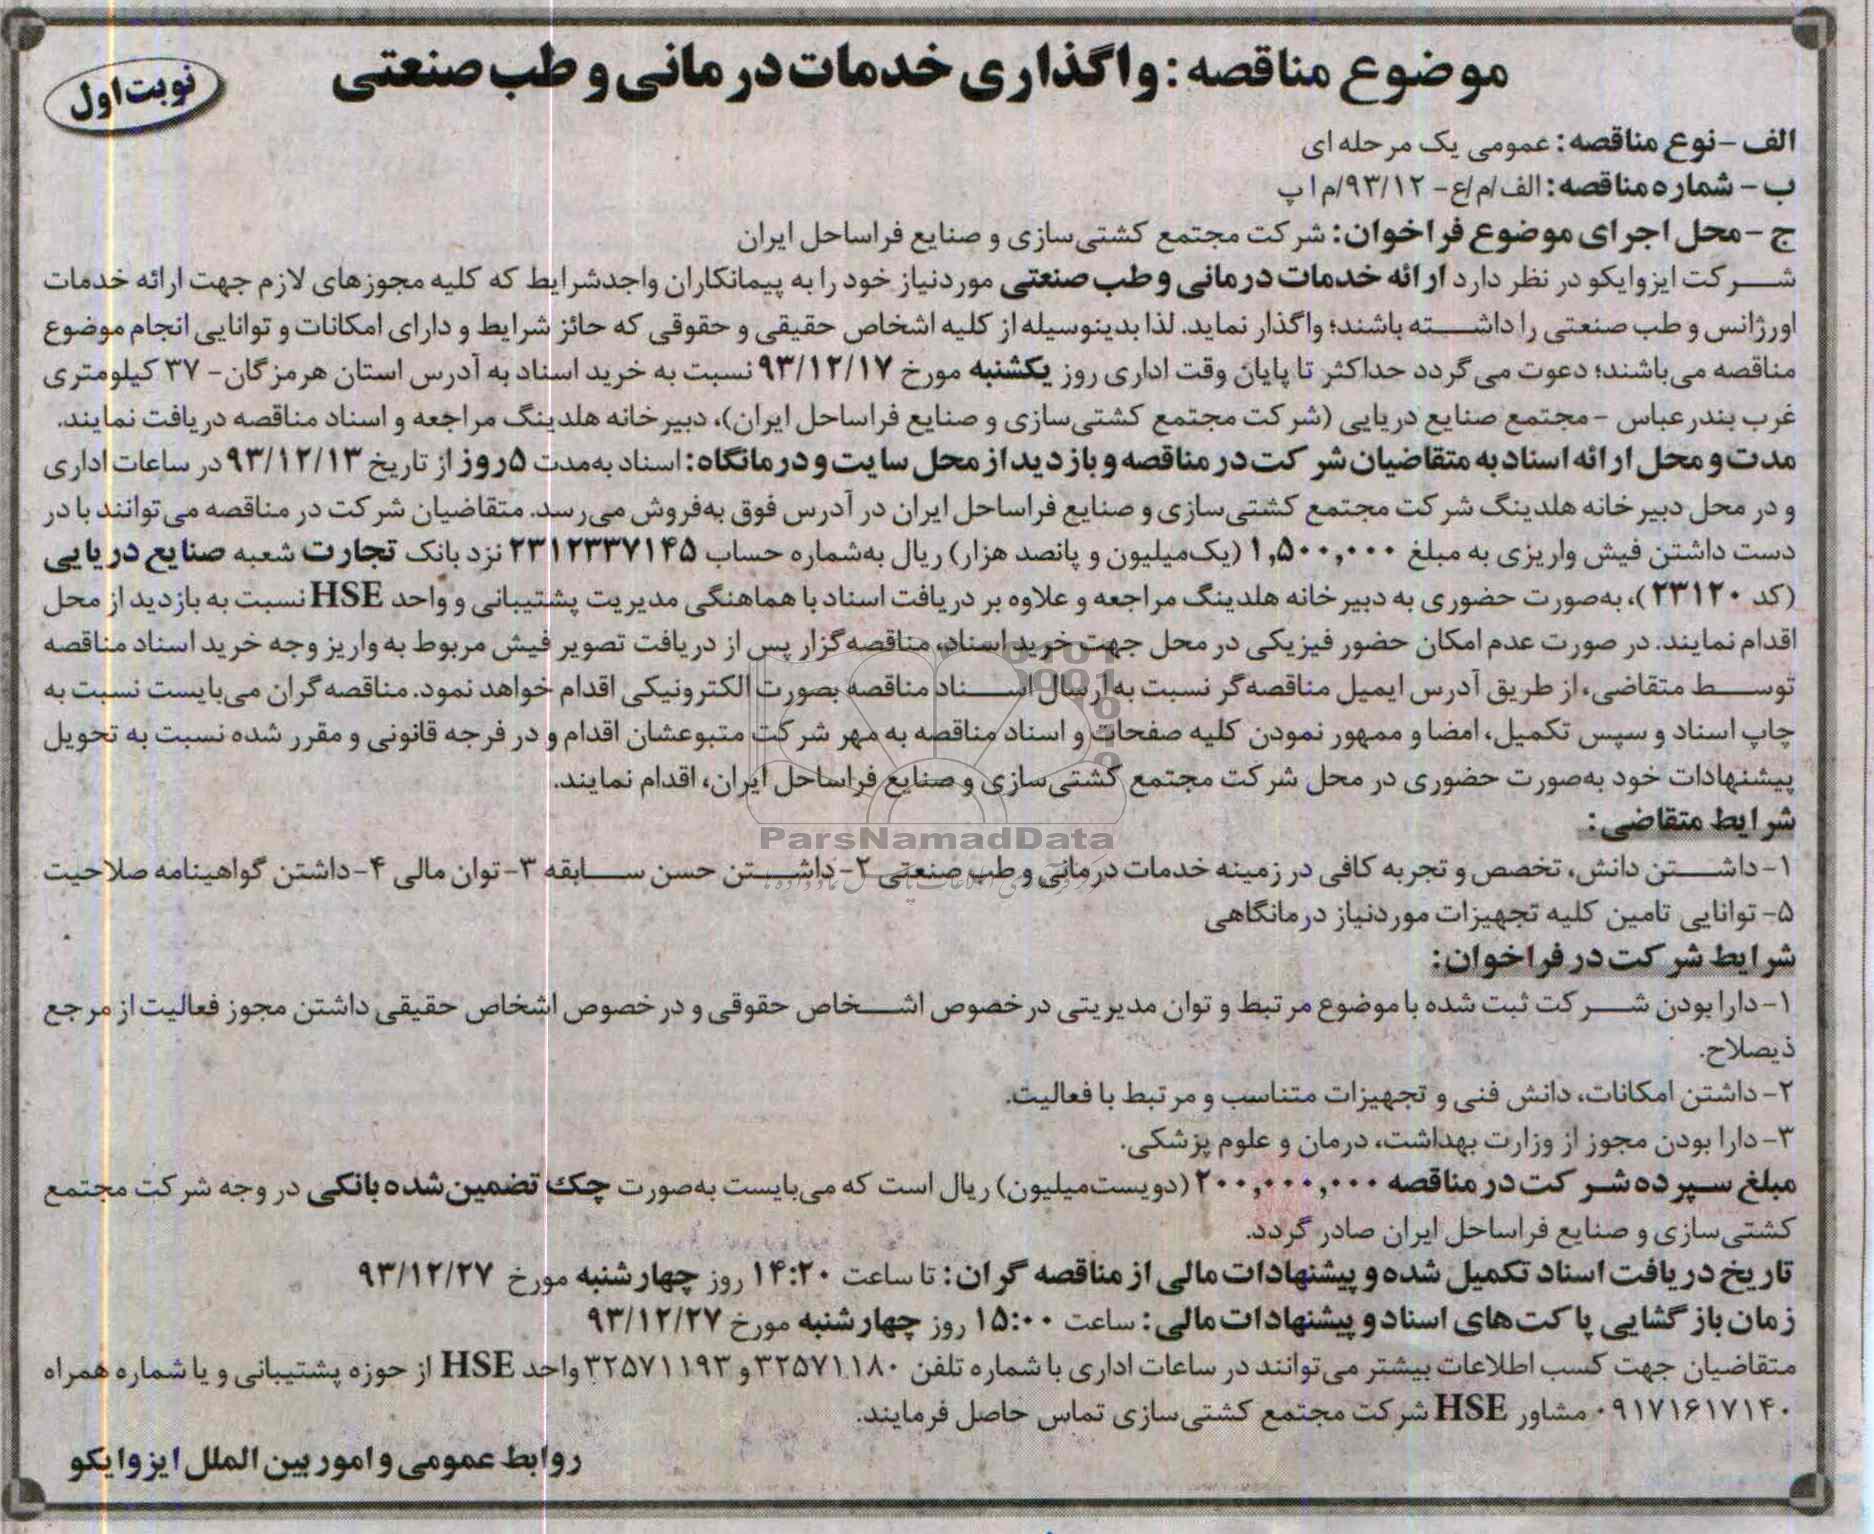 موضوع مناقصه: واگذاری خدمات درمانی و طب صنعتی
نوبت اول
الف - نوع مناقصه: عمومی یک مرحله ای
ب - شماره مناقصه: الف/م/ع- ۹۳/۱۲/م ا پ
ج - محل اجرای موضوع فراخوان: شرکت مجتمع کشتی‌سازی و صنایع فراساحل ایران
شرکت ایزوایکو در نظر دارد ارائه خدمات درمانی و طب صنعتی موردنیاز خود را به پیمانکاران واجدشرایط که کلیه مجوزهای لازم جهت ارائه خدمات
اورژانس و طب صنعتی را داشته باشند؛ واگذار نماید. لذا بدینوسیله از کلیه اشخاص حقیقی و حقوقی که حائز شرایط و دارای امکانات و توانایی انجام موضوع
مناقصه می‌باشند؛ دعوت می‌گردد حداکثر تا پایان وقت اداری روز یکشنبه مورخ ۹۳/۱۲/۱۷ نسبت به خرید اسناد به آدرس استان هرمزگان- ۳۷ کیلومتری
غرب بندرعباس - مجتمع صنایع دریایی (شرکت مجتمع کشتی‌سازی و صنایع فراساحل ایران)، دبیرخانه هلدینگ مراجعه و اسناد مناقصه دریافت نمایند.
مدت و محل ارائه اسناد به متقاضیان شرکت در مناقصه و بازدید از محل سایت و درمانگاه: اسناد به‌مدت ۵ روز از تاریخ ۹۳/۱۲/۱۳ در ساعات اداری
و در محل دبیرخانه هلدینگ شرکت مجتمع کشتی‌سازی و صنایع فراساحل ایران در آدرس فوق به‌فروش می‌رسد. متقاضیان شرکت در مناقصه می‌توانند با در
دست داشتن فیش واریزی به مبلغ ۱,۵۰۰,۰۰۰ (یک‌میلیون و پانصد هزار) ریال به‌شماره حساب ۲۳۱۲۳۳۷۱۴۵ نزد بانک تجارت شعبه صنایع دریایی
(کد ۲۳۱۲۰)، به‌صورت حضوری به دبیرخانه هلدینگ مراجعه و علاوه بر دریافت اسناد با هماهنگی مدیریت پشتیبانی و واحد HSE نسبت به بازدید از محل
اقدام نمایند. در صورت عدم امکان حضور فیزیکی در محل جهت خرید اسناد، مناقصه‌گزار پس از دریافت تصویر فیش مربوط به واریز وجه خرید اسناد مناقصه
توسط متقاضی، از طریق آدرس ایمیل مناقصه‌گر نسبت به ارسال اسناد مناقصه بصورت الکترونیکی اقدام خواهد نمود. مناقصه‌گران می‌بایست نسبت به
چاپ اسناد و سپس تکمیل، امضا و ممهور نمودن کلیه صفحات و اسناد مناقصه به مهر شرکت متبوعشان اقدام و در فرجه قانونی و مقرر شده نسبت به تحویل
پیشنهادات خود به‌صورت حضوری در محل شرکت مجتمع کشتی‌سازی و صنایع فراساحل ایران، اقدام نمایند.
ParsNamadData
شرایط متقاضی:
۱- داشتن دانش، تخصص و تجربه کافی در زمینه خدمات درمانی و طب صنعتی ۲- داشتن حسن سابقه ۳- توان مالی ۴- داشتن گواهینامه صلاحیت
۵- توانایی تامین کلیه تجهیزات موردنیاز درمانگاهی
شرایط شرکت در فراخوان:
۱- دارا بودن شرکت ثبت شده با موضوع مرتبط و توان مدیریتی در خصوص اشخاص حقوقی و در خصوص اشخاص حقیقی داشتن مجوز فعالیت از مرجع
ذیصلاح.
۲- داشتن امکانات، دانش فنی و تجهیزات متناسب و مرتبط با فعالیت.
۳- دارا بودن مجوز از وزارت بهداشت، درمان و علوم پزشکی.
مبلغ سپرده شرکت در مناقصه ۲۰۰,۰۰۰,۰۰۰ (دویست‌میلیون) ریال است که می‌بایست به‌صورت چک تضمین شده بانکی در وجه شرکت مجتمع
کشتی‌سازی و صنایع فراساحل ایران صادر گردد.
تاریخ دریافت اسناد تکمیل شده و پیشنهادات مالی از مناقصه گران: تا ساعت ۱۴:۲۰ روز چهارشنبه مورخ ۹۳/۱۲/۲۷
زمان بازگشایی پاکت‌های اسناد و پیشنهادات مالی: ساعت ۱۵:۰۰ روز چهارشنبه مورخ ۹۳/۱۲/۲۷
متقاضیان جهت کسب اطلاعات بیشتر می‌توانند در ساعات اداری با شماره تلفن ۳۲۵۷۱۱۸۰ و ۳۲۵۷۱۱۹۳ واحد HSE از حوزه پشتیبانی و یا شماره همراه
۰۹۱۷۱۶۱۷۱۴۰ مشاور HSE شرکت مجتمع کشتی‌سازی تماس حاصل فرمایند.
روابط عمومی و امور بین الملل ایزوایکو